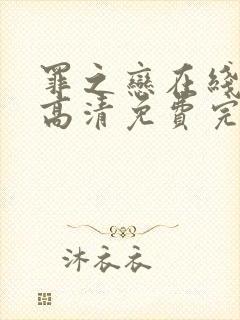 罪之戀在綫
高清免費完
沐衣衣